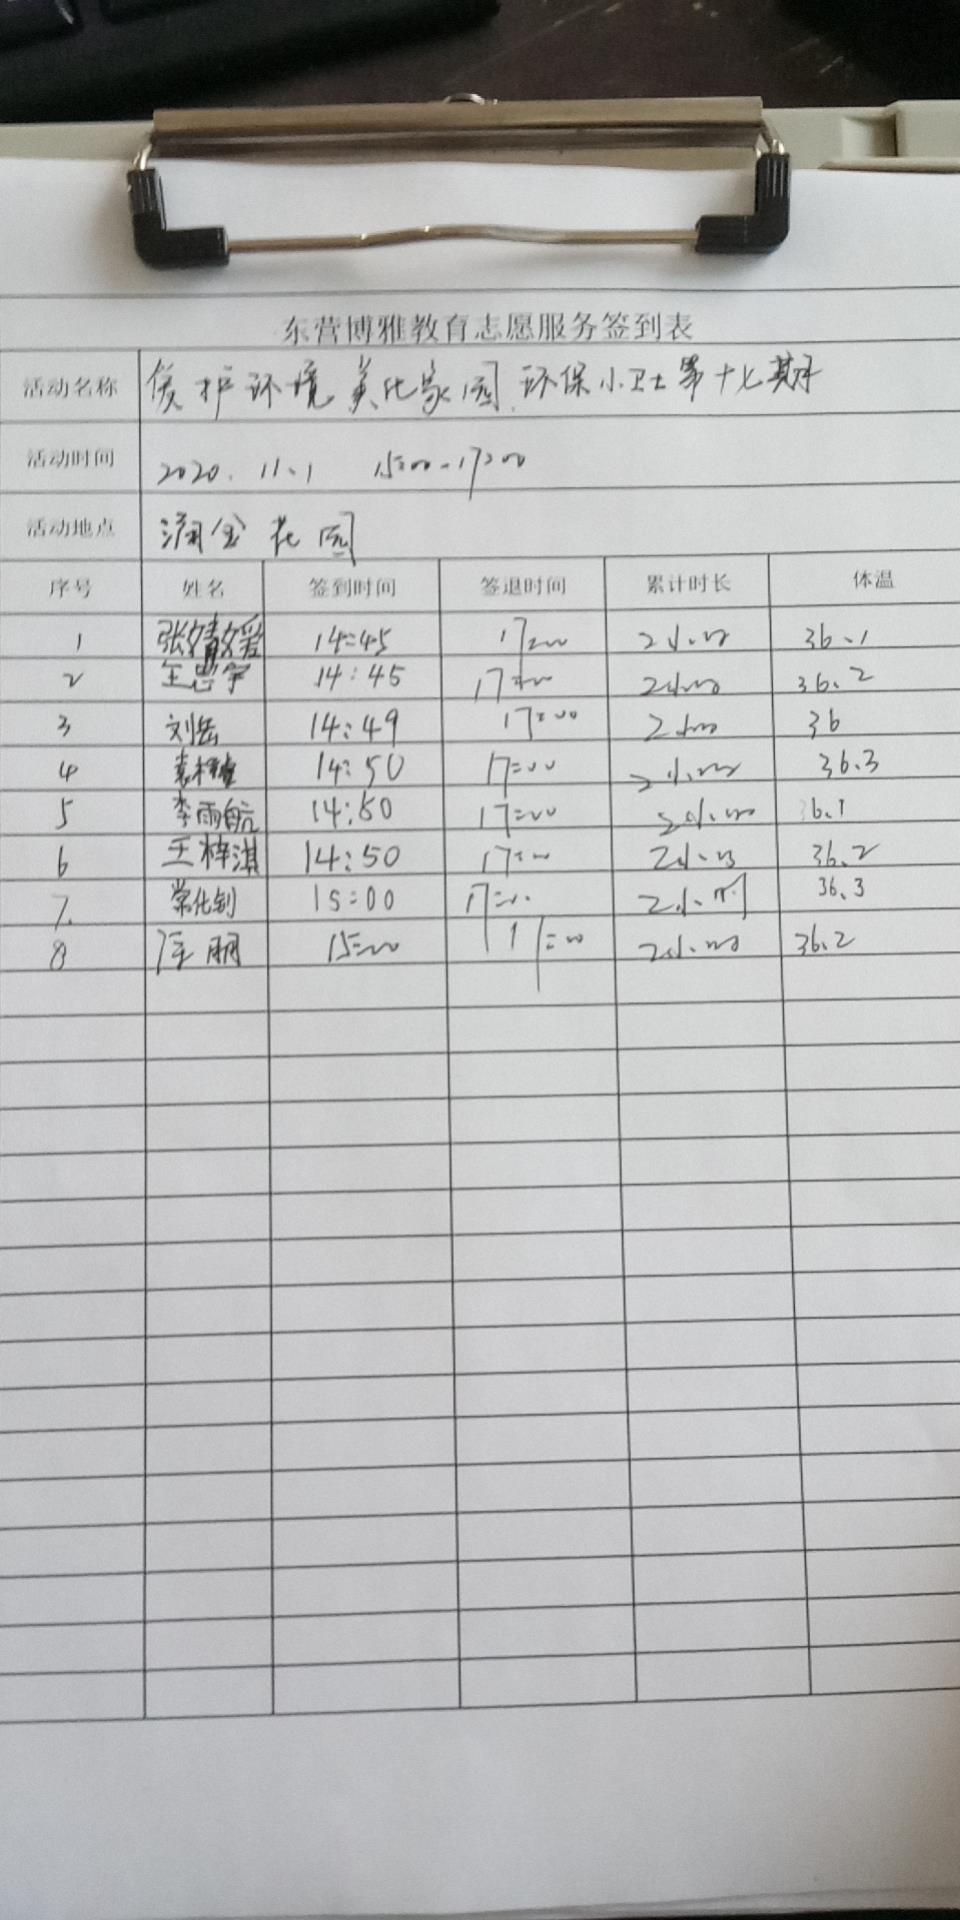 东营博雅教育志愿服务签到表
活动名称 爱护环境 美化家园 环保小卫士第十七期
活动时间 2020.11.1 15:00-17:00
活动地点 花园
序号 姓名 签到时间 签退时间 累计时长 体温
1 张婧媛 14:45 17:00 2小时 36.1
2 14:45 17:00 2小时 36.2
3 刘岳 14:49 17:00 2小时 36
4 14:50 17:00 2小时 36.3
5 李雨航 14:50 17:00 2小时 36.1
6 王梓淇 14:50 17:00 2小时 36.2
7. 15:00 17:00 2小时 36.3
8 15:00 17:00 2小时 36.2